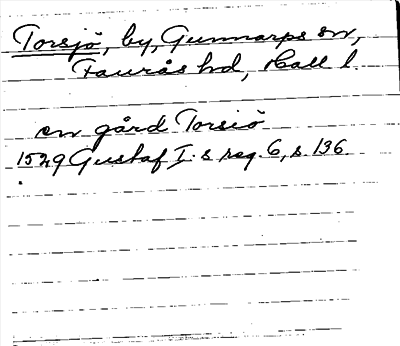 Torsjö, by, Gunnarps sn,
Faurås hd, Hall l.
en gård Torsiö
1529 Gustaf I:s reg. 6, s. 136.